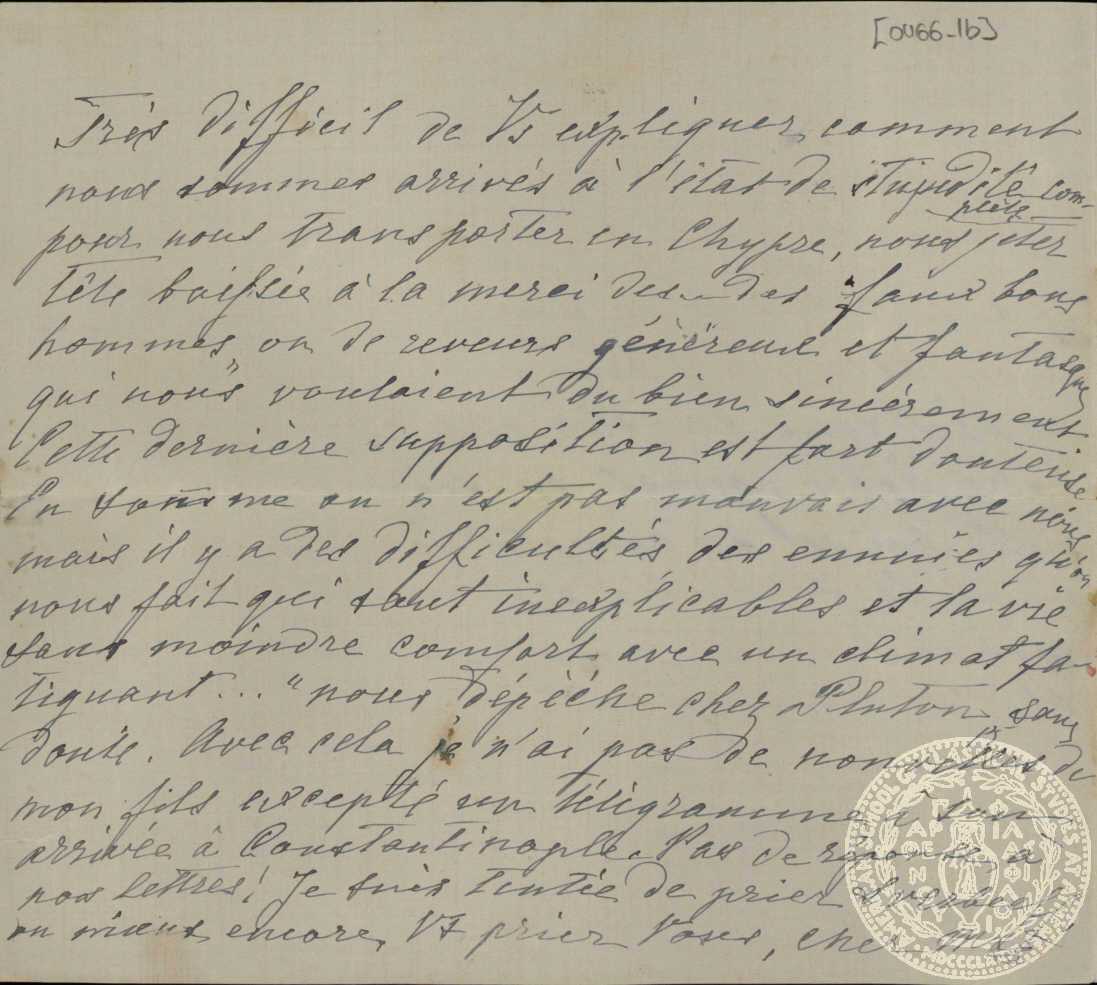 [0066-1b]
Très difficil de Vs expliquer comment
nous sommes arrivés à l'état de stupidité com-
plète
pour nous transporter en Chypre, nous jeter
tête baissée à la merci des... des faux bons
hommes, ou de reveurs généreux et fantasque
qui nous vouloient du bien sincérement
Cette dernière supposition est fort douteuse
En somme on n'est pas mauvais avec nous
mais il y a des difficultés, des ennuies qu'on
nous fait qui sont inexplicables et la vie
sans moindre comfort avec un climat fa-
tiguant... "nous dépêche chez Pluton, sans
doute. Avec cela je n'ai pas de nouvelles de
mon fils excepté un télégramme à son
arrivée à Constantinople. Pas de réponse à
nos lettres! Je suis tentée de prier
ou mieux encore, Vs prier Vous, cher
AMERICAN SCHOOL OF CLASSICAL STUDIES AT ATHENS
ΠΑΡΘΕΝΟΥ ΦΙΛΑΣ ΦΙΛΟΙ
MDCCCLXXXI